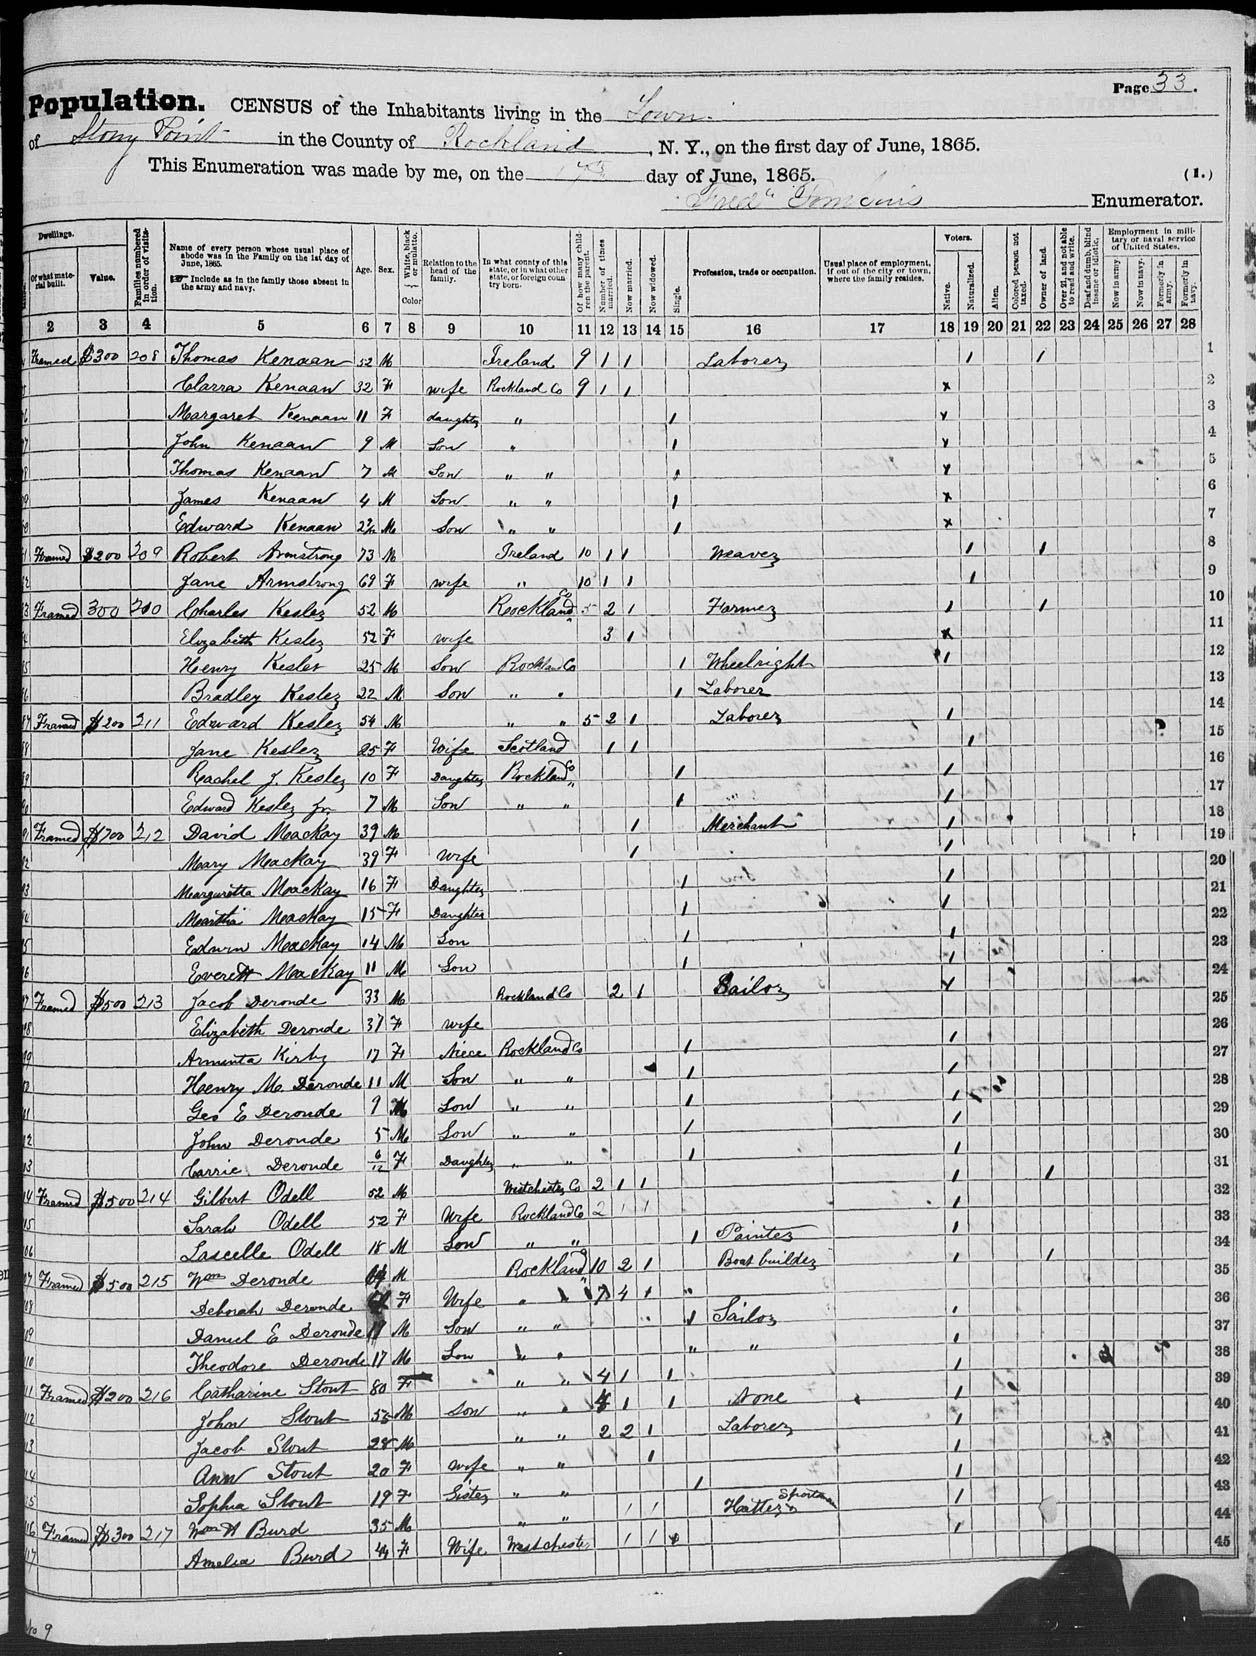 Page 33.
Population. CENSUS of the Inhabitants living in the Town
of Stony Point in the County of Rockland, N. Y., on the first day of June, 1865.
This Enumeration was made by me, on the day of June, 1865. (1.)
Fred Tomkins Enumerator.
Dwellings. Of what material built. Value. Families numbered in order of visitation. Name of every person whose usual place of abode was in the Family on the 1st day of June, 1865. Include as in the family those absent in the army and navy. Age. Sex. White, black or mulatto. Color Relation to the head of the family. In what county of this state, or in what other state, or foreign country born. Of how many children the parent. Number of times married. Now married. Now widowed. Single. Profession, trade or occupation. Usual place of employment, if out of the city or town, where the family resides. Voters. Native. Naturalized. Alien. Colored person not taxed. Owner of land. Over 21, and not able to read and write. Deaf and dumb, blind insane or idiotic. Employment in military or naval service of United States. Now in army. Now in navy. Formerly in army. Formerly in navy.
2 3 4 5 6 7 8 9 10 11 12 13 14 15 16 17 18 19 20 21 22 23 24 25 26 27 28
Framed $300 208 Thomas Kenaan 52 M Ireland 9 1 1 Laborer 1 1 1
Clarra Kenaan 32 F wife Rockland Co 9 1 1 x 2
Margaret Kenaan 11 F daughter " 1 x 3
John Kenaan 9 M Son " 1 x 4
Thomas Kenaan 7 M Son " " 1 x 5
James Kenaan 4 M Son " " 1 x 6
Edward Kenaan M Son " " 1 x 7
Framed $200 209 Robert Armstrong 73 M Ireland 10 1 1 Weaver 1 1 8
Jane Armstrong 69 F wife " 10 1 1 1 9
Framed 300 210 Charles Kesler 52 M Rockland Co 5 2 1 Farmer 1 1 10
Elizabeth Kesler 52 F wife 3 1 x 11
Henry Kesler 25 M Son Rockland Co 1 Wheelright 1 12
Bradley Kesler 22 M Son " " 1 Laborer 13
Framed $200 211 Edward Kesler 54 M " " 5 2 1 Laborer 1 14
Jane Kesler 25 F Wife Scotland 1 1 1 15
Rachel J. Kesler 10 F Daughter Rockland Co 1 1 16
Edward Kesler Jr 7 M Son " " 1 1 17
Framed $700 212 David MacKay 39 M 1 Merchant 1 18
Mary MacKay 39 F Wife 1 1 19
Margaretta MacKay 16 F Daughter 1 1 20
Martha MacKay 15 F Daughter 1 1 21
Edwin MacKay 14 M Son 1 1 22
Everett MacKay 11 M Son 1 1 23
Framed $500 213 Jacob Deronde 33 M Rockland Co 2 1 Sailor x 24
Elizabeth Deronde 37 F wife 25
Arminta Kirby 17 F Niece Rockland Co 1 1 26
Henry M. Deronde 11 M Son " " 1 1 27
Geo E Deronde 9 M Son " " 1 1 28
John Deronde 5 M Son " " 1 1 29
Carrie Deronde 6/12 F Daughter " " 1 1 30
Framed $500 214 Gilbert Odell 52 M Westchester Co 2 1 1 1 1 31
Sarah Odell 52 F Wife Rockland Co 2 1 1 1 32
Lascelle Odell 18 M Son " " 1 Painter 1 33
Framed $500 215 Wm Deronde M Rockland Co 10 2 1 Boat builder 1 1 34
Deborah Deronde F Wife " " 7 4 1 35
Daniel E Deronde M Son " " 1 Sailor 1 36
Theodore Deronde 17 M Son " " " " 1 37
Framed $200 216 Catharine Stout 80 F " " 4 1 1 1 38
John Stout M Son " " 4 1 1 None 1 39
Jacob Stout 28 M " " 2 2 1 Laborer 1 40
Ann Stout 20 F wife " " 1 1 41
Sophia Stout 19 F Sister " " 1 1 42
Framed $300 217 Wm H Burd 35 M " " 1 1 Hatter 1 43
Amelia Burd F Wife Westchester 1 1 1 44
45
No 9